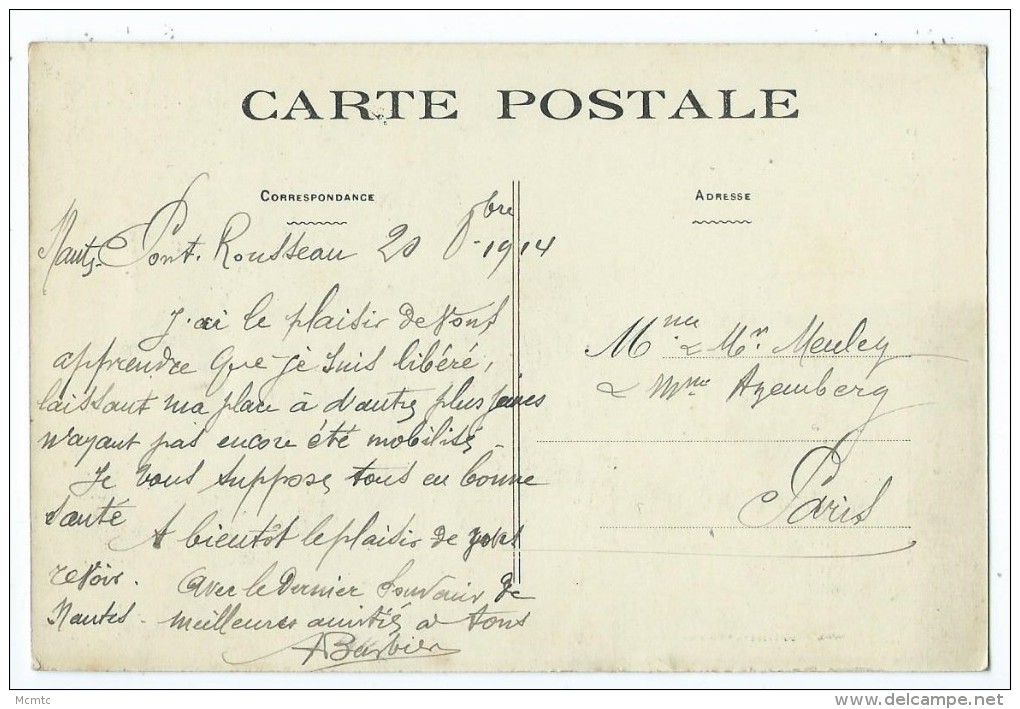 CARTE POSTALE
CORRESPONDANCE
ADRESSE
Nantes Pont. Rousseau 20 bre 1914
J'ai le plaisir de Vous
apprendre que je suis libéré,
laissant ma place à d'autres plus jeunes
n'ayant pas encore été mobilisés
Je vous suppose tous en bonne
santé
A bientôt le plaisir de vous
revoir.
Avec le dernier Souvenir de
Nantes - meilleures amitiés a tous
ABarbier
Mme & Mr. Meuley
& Mme Azemberg
Paris
Mcmtc
www.delcampe.net